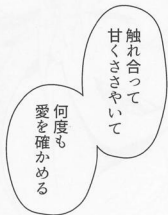 触れ合って
甘くささやいて
何度も
愛を確かめる